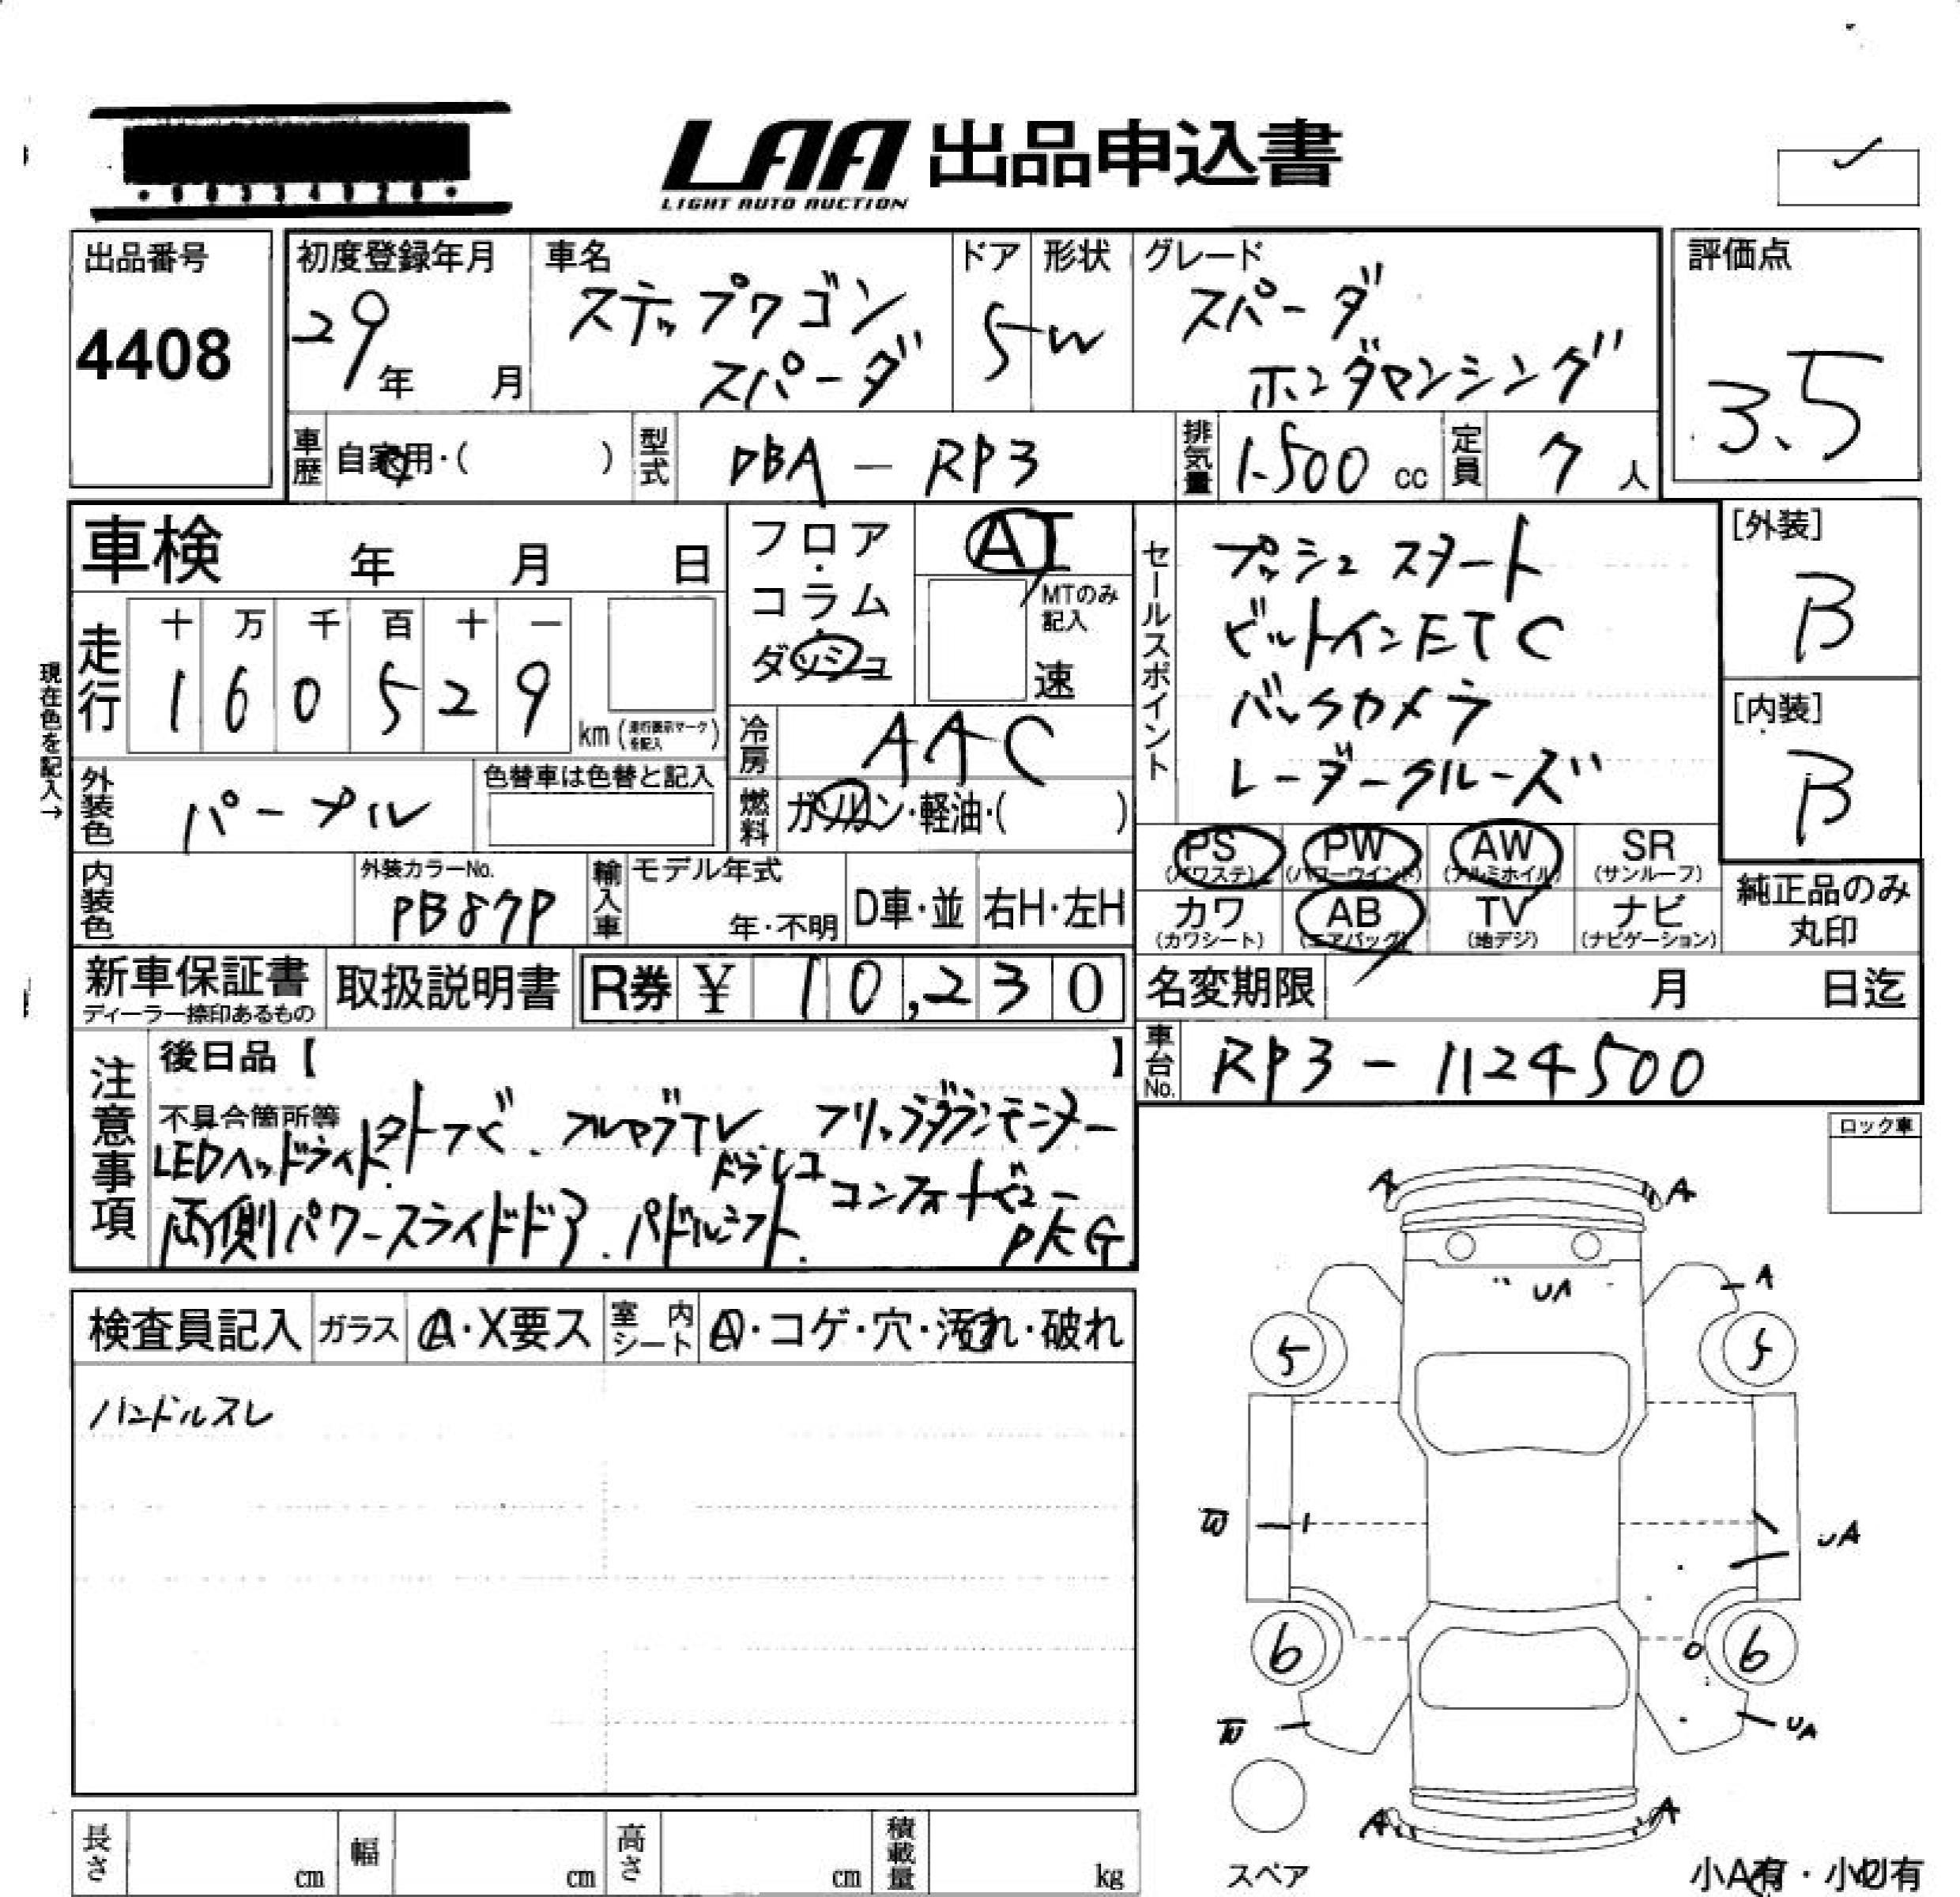 LAA 出品申込書
LIGHT AUTO AUCTION
出品番号
4408
初度登録年月
29年 月
車名
ステップワゴン
スパーダ
ドア
5
形状
W
グレード
スパーダ
ホンダセンシング
評価点
3.5
車歴 自家用・( )
型式 DBA-RP3
排気量 1.500 cc
定員 7人
車検 年 月 日
フロア・コラム・ダッシュ
AT
MTのみ記入
速
セールスポイント
プッシュスタート
ビルトインETC
バックカメラ
レーダークルーズ
[外装]
B
[内装]
B
現在色を記入→
走行
十 万 千 百 十 一
1 6 0 5 2 9
km (走行表示マークを記入)
冷房 AAC
外装色 パープル
色替車は色替と記入
燃料 ガソリン・軽油・( )
PS (パワステ)
PW (パワーウインド)
AW (アルミホイル)
SR (サンルーフ)
内装色
外装カラーNo.
PB87P
輸入車
モデル年式
年・不明
D車・並
右H・左H
カワ (カワシート)
AB (エアバッグ)
TV (地デジ)
ナビ (ナビゲーション)
純正品のみ
丸印
新車保証書
ディーラー捺印あるもの
取扱説明書
R券 ¥ 10,230
名変期限 月 日迄
車台No. RP3-1124500
注意事項
後日品【 】
不具合箇所等
LEDヘッドライト フルセグTV フリップダウンモニター
ドラレコ
両側パワースライドドア. パドルシフト.
PKG
ロック車
検査員記入
ガラス A・X要ス
室内シート A・コゲ・穴・汚れ・破れ
ハンドルスレ
A A
UA
A
5 5
W
UA
6 6
W
UA
A A
スペア
小A有・小U有
長さ cm
幅 cm
高さ cm
積載量 kg